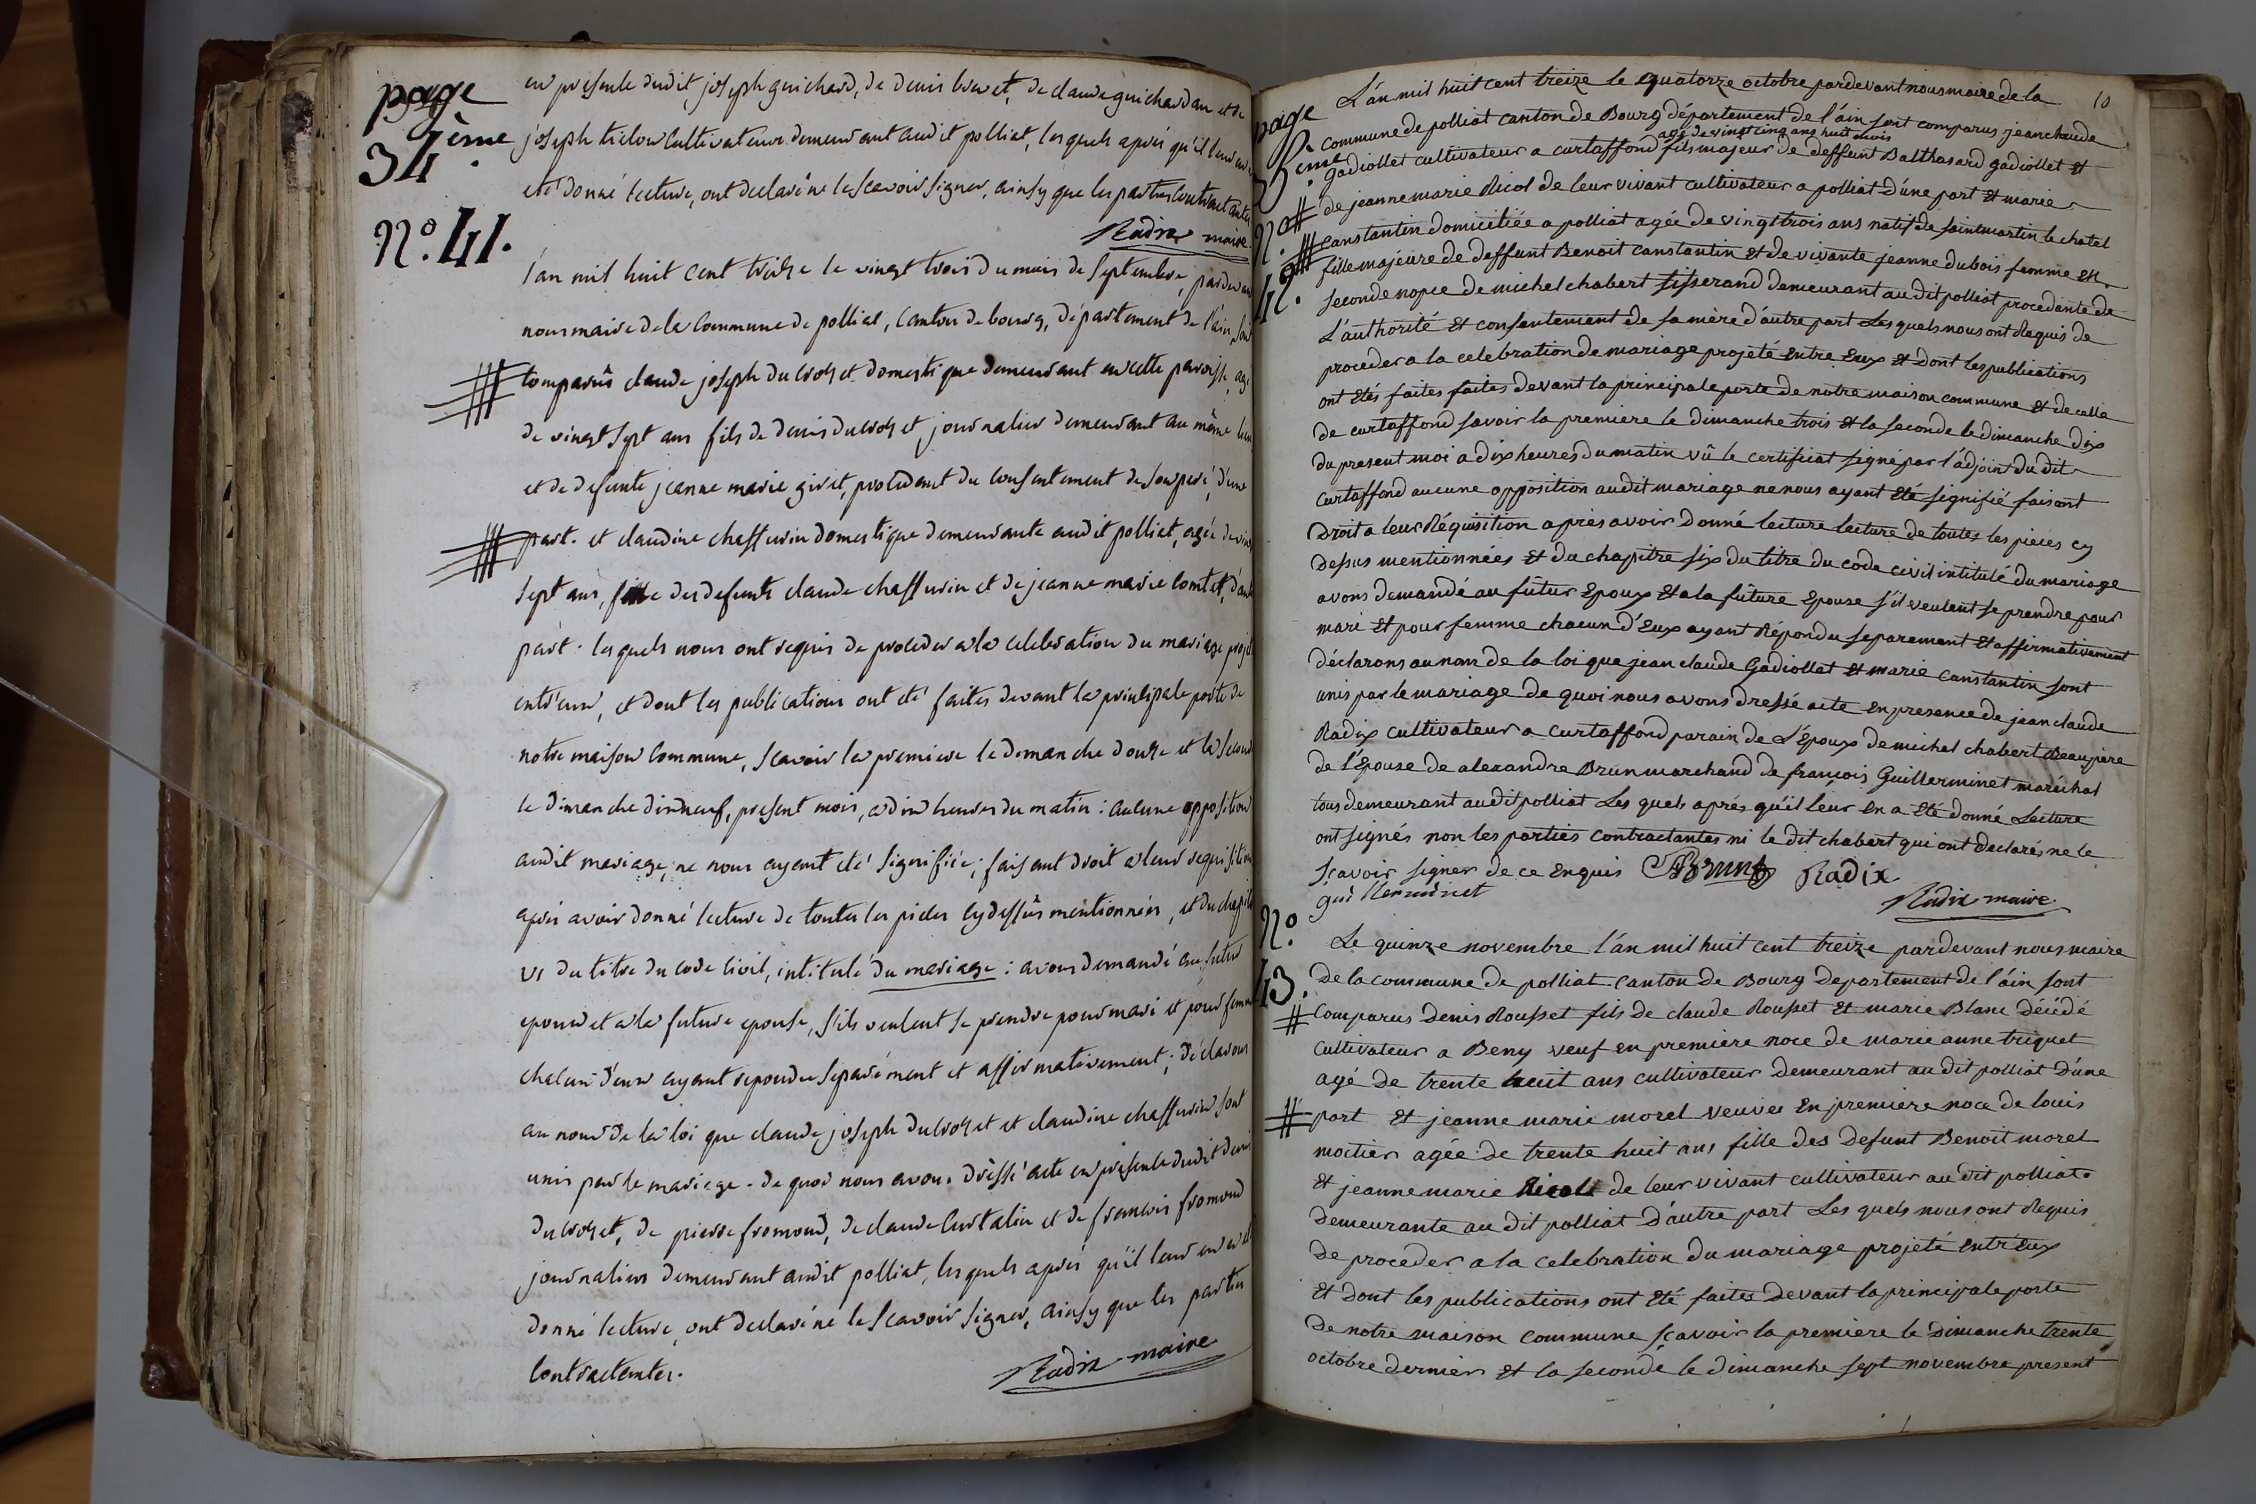 page
34 7ème
en presence dudit joseph guichard, de denis bruet, de claude guichardan et de
joseph ticlou Cultivateurs demeurant audit polliat, lesquels aprés qu'il leur en a
eté donné lecture, ont declaré ne le scavoir signer, ainsy que les parties Contractantes
Radix maire.
N.º 41.
l'an mil huit cent treize le vingt trois du mois de septembre, pardevant
nous maire de la Commune de polliat, Canton de bourg, département de l'ain, sont
Comparûs claude joseph ducrozet domestique demeurant en cette paroisse, agé
de vingt sept ans fils de denis ducrozet journalier demeurant au même lieu
et de defunte jeanne marie givet, procedant du Consentement de son peré, d'une
part. et claudine chaffurin domestique demeurante audit polliat, agée de vingt
sept ans, fille des defunts claude chaffurin et de jeanne marie Comtet, d'autre
part. lesquels nous ont requis de proceder a la celebration du mariage projeté
entr'eux, et dont les publications ont eté faites devant la principale porte de
notre maison Commune, scavoir la premiere le dimanche douze et la seconde
le dimanche dixneuf, present mois, a dix heures du matin : aucune opposition
audit mariage, ne nous ayant eté signifiée ; faisant droit a leur requisition
aprés avoir donné lecture de toutes les pieces cy dessûs mentionnées, et du chapitre
VI du titre du code Civil, intitulé du mariage : avons demandé au futur
epoux et a la future epouse, s'ils veulent se prendre pour mari et pour femme
chacun d'eux ayant repondu separément et affirmativement ; déclarons
au nom de la loi que claude joseph ducrozet et claudine chaffurin sont
unis par le mariage. de quoi nous avons dressé acte en presence dudit denis
ducrozet, de pierre fromond, de claude Curtalin et de francois fromond
journaliers demeurant audit polliat, lesquels aprés qu'il leur en a eté
donné lecture, ont declaré ne le scavoir signer, ainsy que les parties
Contractantes.
Radix maire
10
page
8ème
N.º 42.
L'án mil huit cent treize le quatorze octobre pardevant nous maire de la
Commune de polliat canton de Bourg département de l'áin sont comparus jean claude
agé de vingt cinq ans huit mois
gadiollet cultivateur a curtaffond fils majeur de deffunt Balthasard gadiollet et
de jeanne marie Ricol de leur vivant cultivateur a polliat d'úne part et marie
Canstantin domiciliée a polliat agée de vingt trois ans natif de saint martin le chatel
fille majeure de deffunt Benoit canstantin et de vivante jeanne dubois femme en
seconde nopce de michel chabert tisserand demeurant au dit polliat procedante de
L'authorité et consentement de sa mère d'áutre part Les quels nous ont Requis de
proceder a la celebration de mariage projeté entre Eux et dont les publications
ont étés faites faites devant la principale porte de notre maison commune et de celle
de curtaffond savoir la premiere le dimanche trois et la seconde le dimanche dix
du present moi a dix heures du matin vû le certificat signé par l'ádjoint du dit
Curtaffond aucune opposition au dit mariage ne nous ayant Eté signifié faisant
Droit a leur Réquisition aprés avoir donné lecture lecture de toutes les pieces cy
dessus mentionnées et du chapitre six du titre du code civil intitulé du mariage
avons demandé au fûtur epoux et a la fûture Epouse s'íl veulent se prendre pour
mari et pour femme chacun d'Eux ayant Répondu separement et affirmativement
déclarons au nom de la loi que jean claude Gadiollet et marie canstantin sont
unis par le mariage de quoi nous avons dressé acte en presence de jean claude
Radix cultivateur a curtaffond parain de L'époux de michel chabert Beaupère
de l'épouse de alexandre Brun marchand de francois Guillerminet maréchal
tous demeurant au dit polliat Les quels aprés qu'íl leur en a Eté donné Lecture
ont signés non les parties contractantes ni le dit chabert qui ont declarés ne le
scavoir signer de ce Enquis Brun Radix
guillerminet
Radix maire.
Nº 43.
Le quinze novembre l'án mil huit cent treize pardevant nous maire
de la commune de polliat Canton de Bourg departement de l'áin sont
Comparus denis Rousset fils de claude Rousset et marie Blanc décédé
cultivateur a Beny veuf en premiere noce de marie anne triquet
agé de trente huit ans cultivateur demeurant au dit polliat d'úne
part et jeanne marie morel veuve en premiere noce de louis
moitier agée de trente huit ans fille des defunt Benoit morel
et jeanne marie Ricol de leur vivant cultivateur au dit polliat.
demeurante au dit polliat d'autre part Les quels nous ont Requis
de proceder a la celebration du mariage projeté entr'eux
et dont les publications ont été faites devant la principale porte
de notre maison commune scavoir la premiere le dimanche trente
octobre dernier et la seconde le dimanche sept novembre present